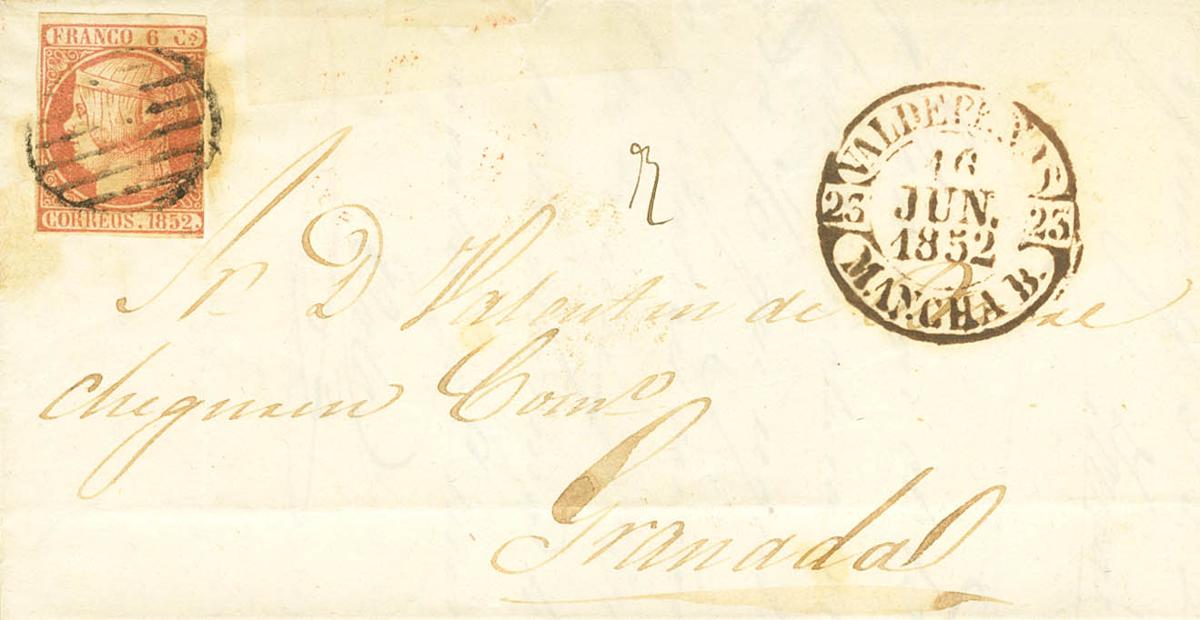 FRANCO 6 Cs
CORREOS. 1852.
VALDEPEÑAS
16
JUN.
1852
23 23
MANCHA B.
Sr. D Valentin de
Comº
Granada